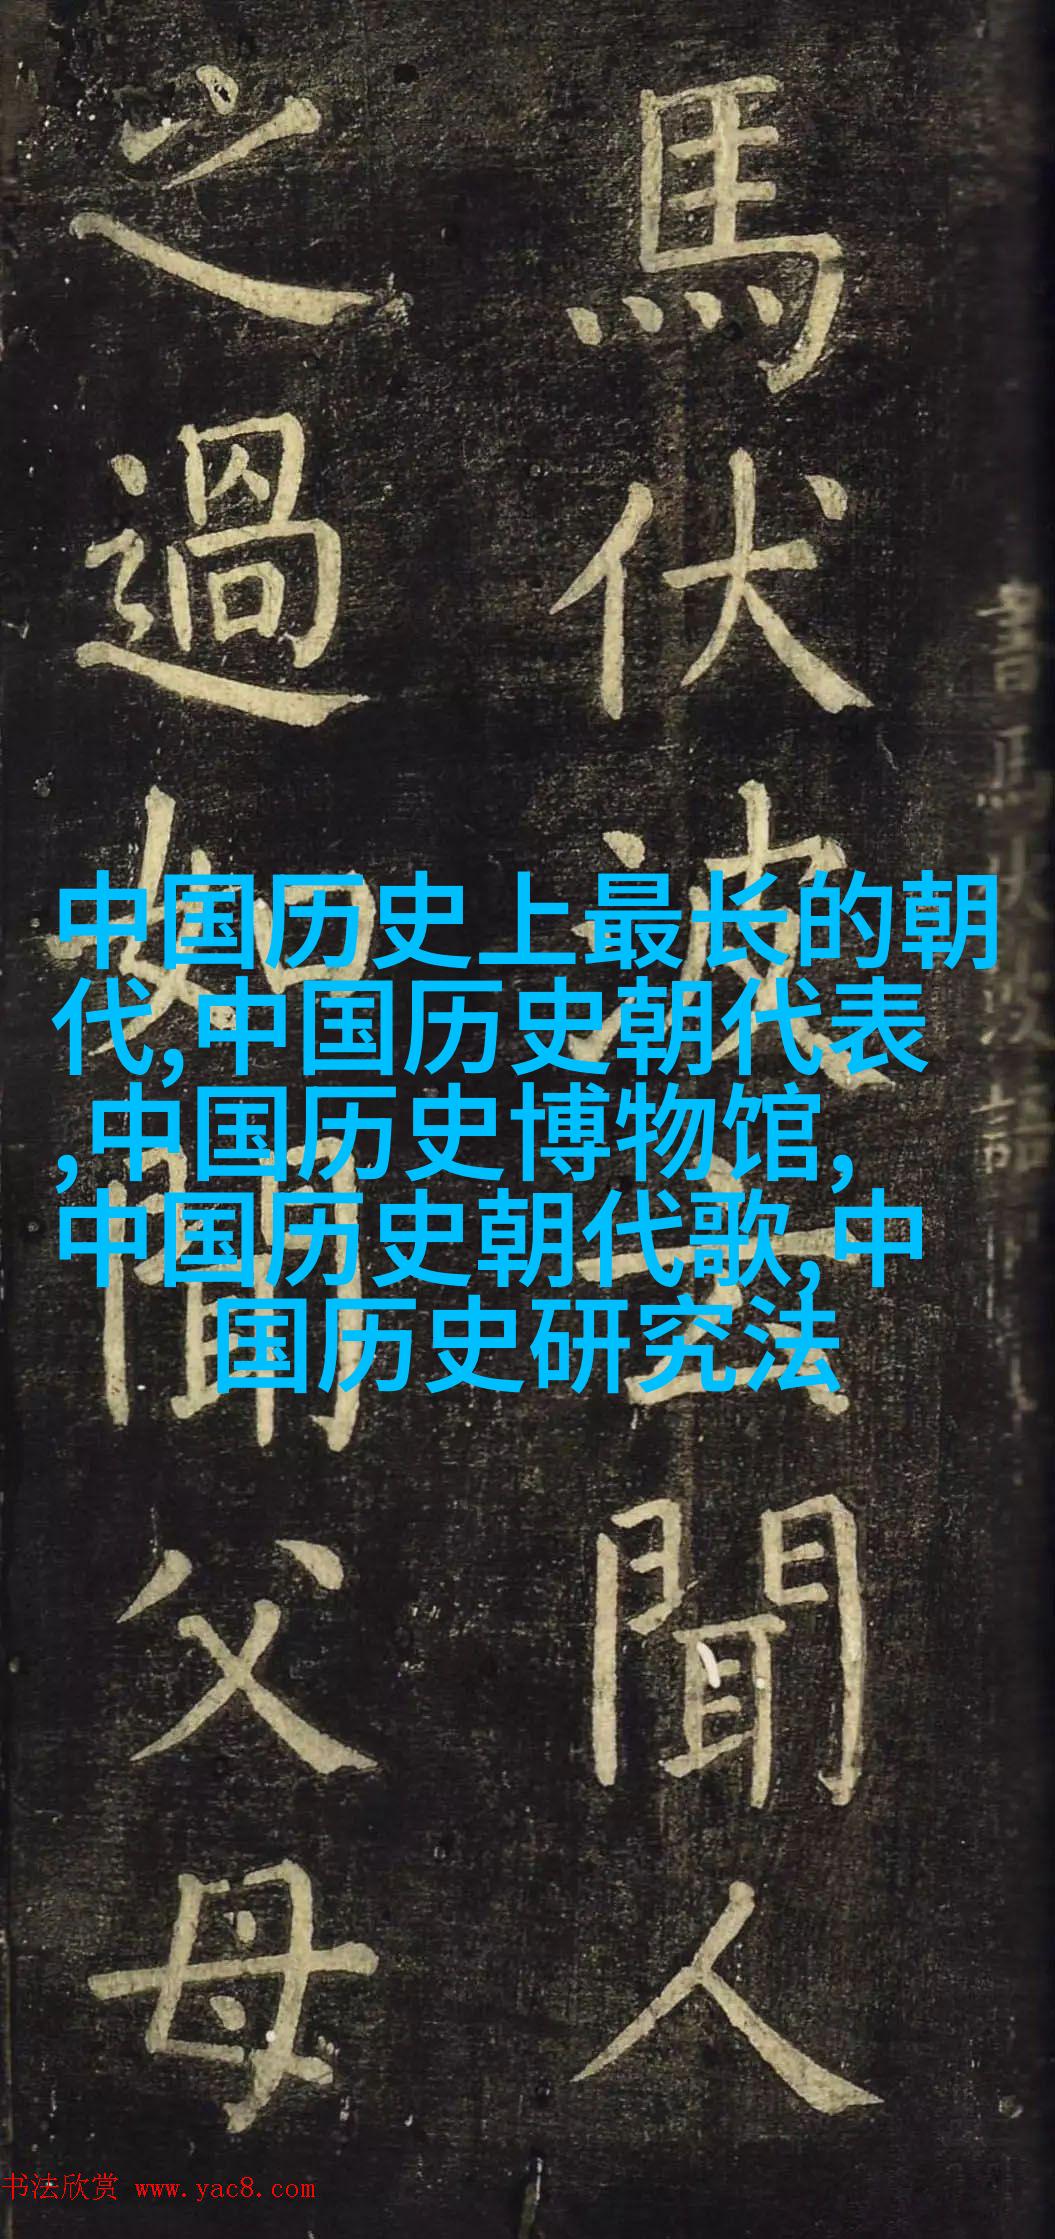 馬伏波云聞人
之過如聞父母
中国历史上最长的朝
代,中国历史朝代表
,中国历史博物馆,
中国历史朝代歌,中
国历史研究法
书法欣赏 www.yac8.com